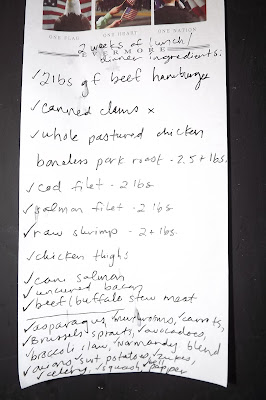 ONE FLAG ONE HEART ONE NATION
2 weeks of lunch/
EVERMORE
dinner ingredients:
✓ 2 lbs gf beef hamburger
✓ canned clams x
✓ whole pastured chicken
boneless pork roast - 2.5+ lbs.
✓ cod filet - 2 lbs
✓ salmon filet - 2 lbs
✓ raw shrimp - 2+ lbs.
✓ chicken thighs
✓ can salmon
✓ uncured bacon
✓ beef/buffalo stew meat
✓ asparagus, mushrooms, carrots,
✓ Brussels sprouts, ✓ avocadoes,
broccoli slaw, ✓ normandy blend
✓ onions, swt potatoes, ✓ zukes,
✓ celery, squash ✓ bell pepper